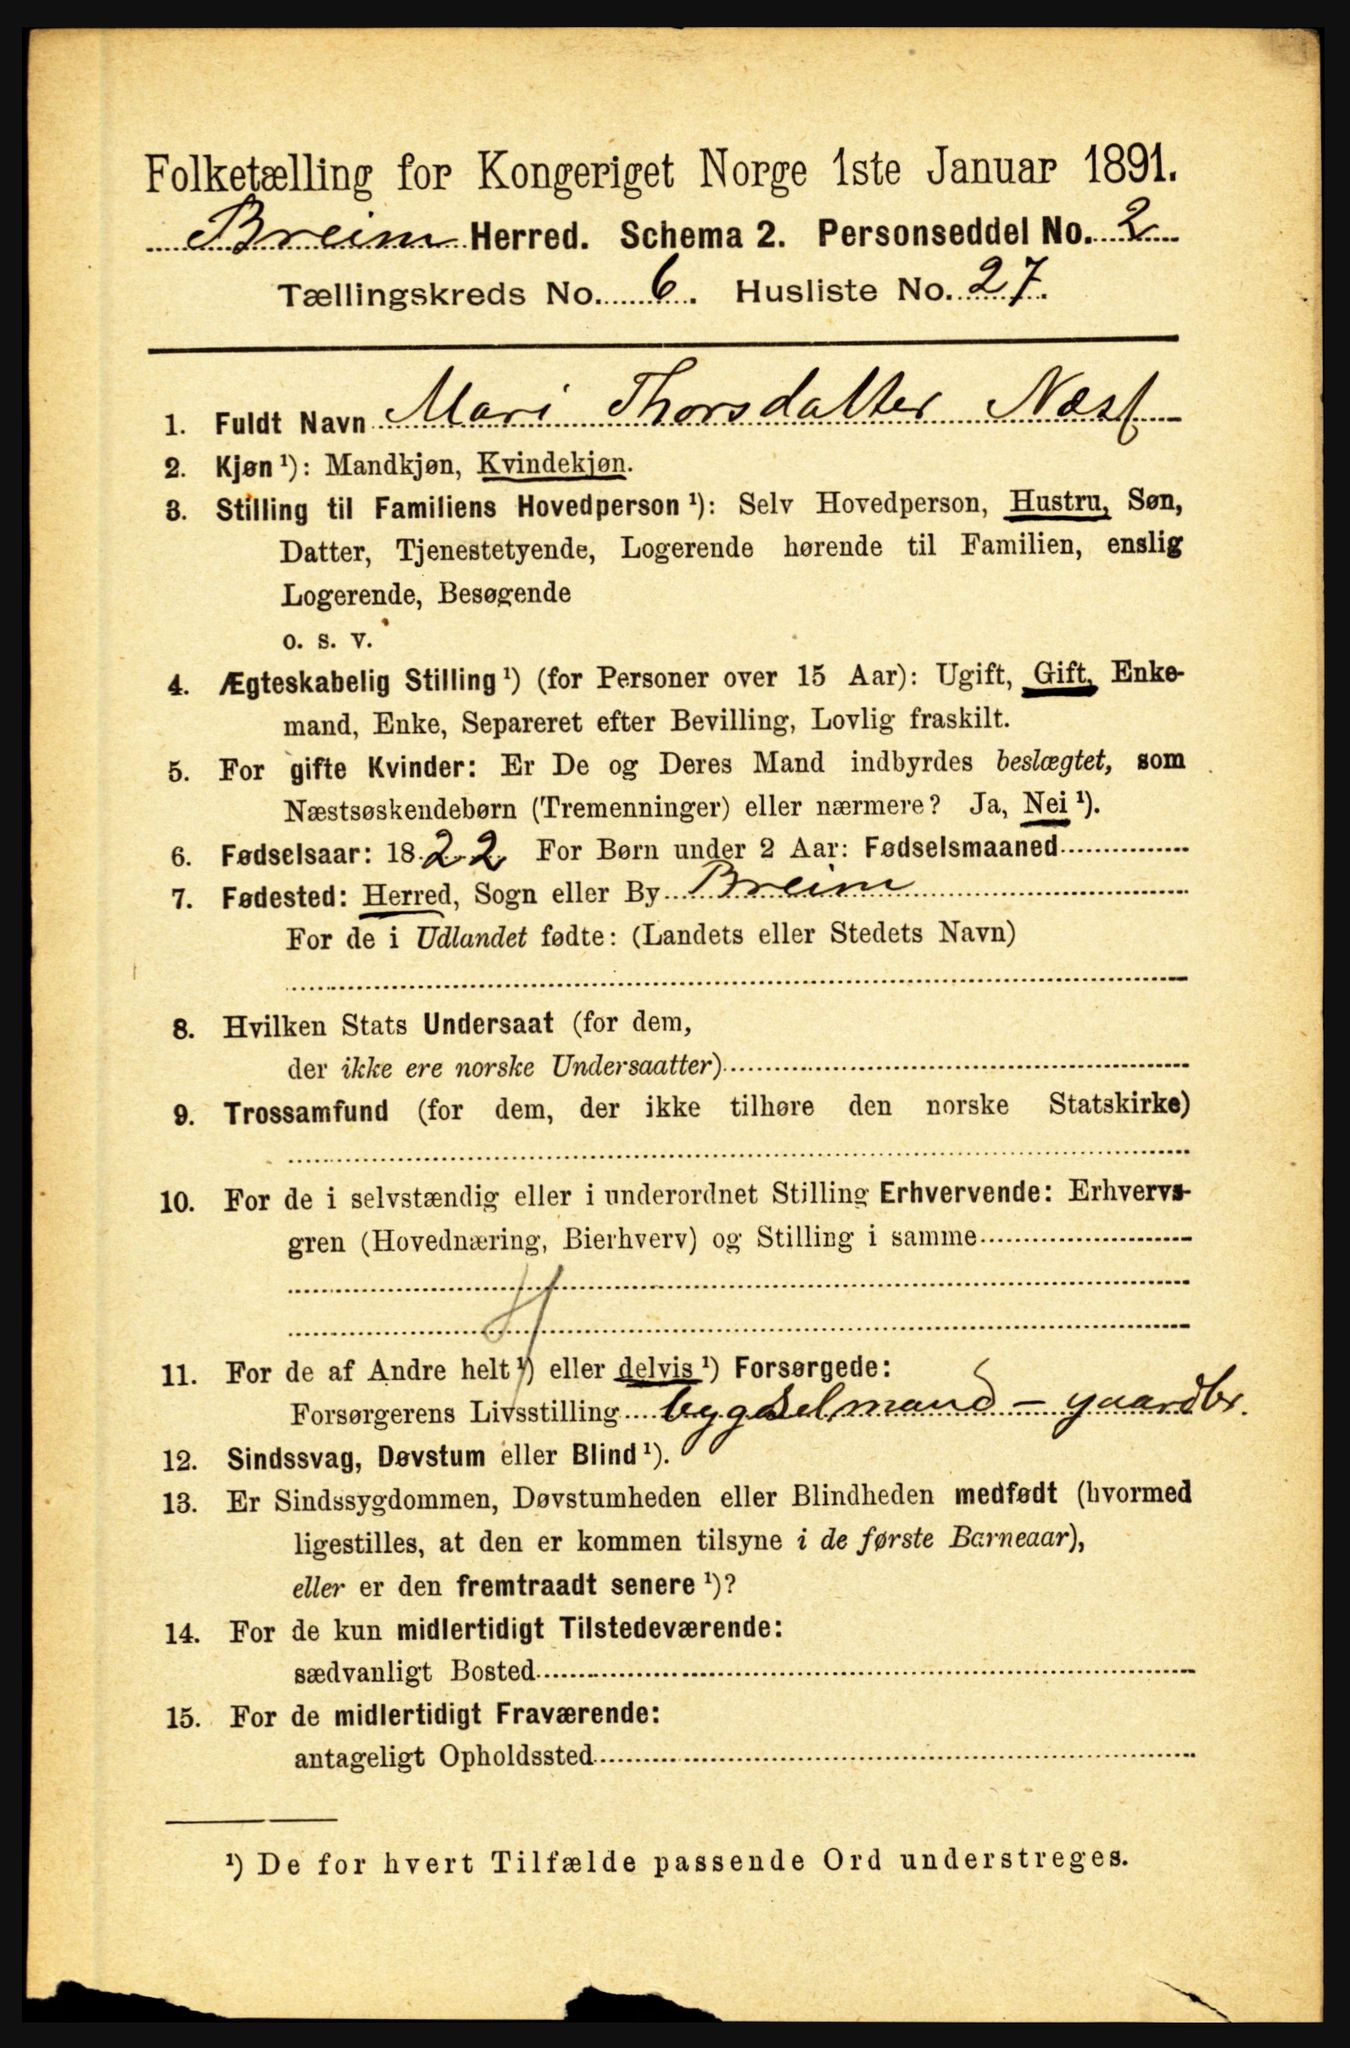 Folketælling for Kongeriget Norge 1ste Januar 1891.
Breim Herred. Schema 2. Personseddel No. 2
Tællingskreds No. 6. Husliste No. 27.
1. Fuldt Navn Mari Thorsdatter Næss
2. Kjøn ¹): Mandkjøn, Kvindekjøn.
3. Stilling til Familiens Hovedperson ¹): Selv Hovedperson, Hustru, Søn,
Datter, Tjenestetyende, Logerende hørende til Familien, enslig
Logerende, Besøgende
o. s. v.
4. Ægteskabelig Stilling ¹) (for Personer over 15 Aar): Ugift, Gift, Enke-
mand, Enke, Separeret efter Bevilling, Lovlig fraskilt.
5. For gifte Kvinder: Er De og Deres Mand indbyrdes beslægtet, som
Næstsøskendebørn (Tremenninger) eller nærmere? Ja, Nei ¹).
6. Fødselsaar: 1822 For Børn under 2 Aar: Fødselsmaaned
7. Fødested: Herred, Sogn eller By Breim
For de i Udlandet fødte: (Landets eller Stedets Navn)
8. Hvilken Stats Undersaat (for dem,
der ikke ere norske Undersaatter)
9. Trossamfund (for dem, der ikke tilhøre den norske Statskirke)
10. For de i selvstændig eller i underordnet Stilling Erhvervende: Erhvervs-
gren (Hovednæring, Bierhverv) og Stilling i samme
11. For de af Andre helt ¹) eller delvis ¹) Forsørgede:
Forsørgerens Livsstilling bygselmand - gaardbr.
12. Sindssvag, Døvstum eller Blind ¹).
13. Er Sindssygdommen, Døvstumheden eller Blindheden medfødt (hvormed
ligestilles, at den er kommen tilsyne i de første Barneaar),
eller er den fremtraadt senere ¹)?
14. For de kun midlertidigt Tilstedeværende:
sædvanligt Bosted
15. For de midlertidigt Fraværende:
antageligt Opholdssted
¹) De for hvert Tilfælde passende Ord understreges.